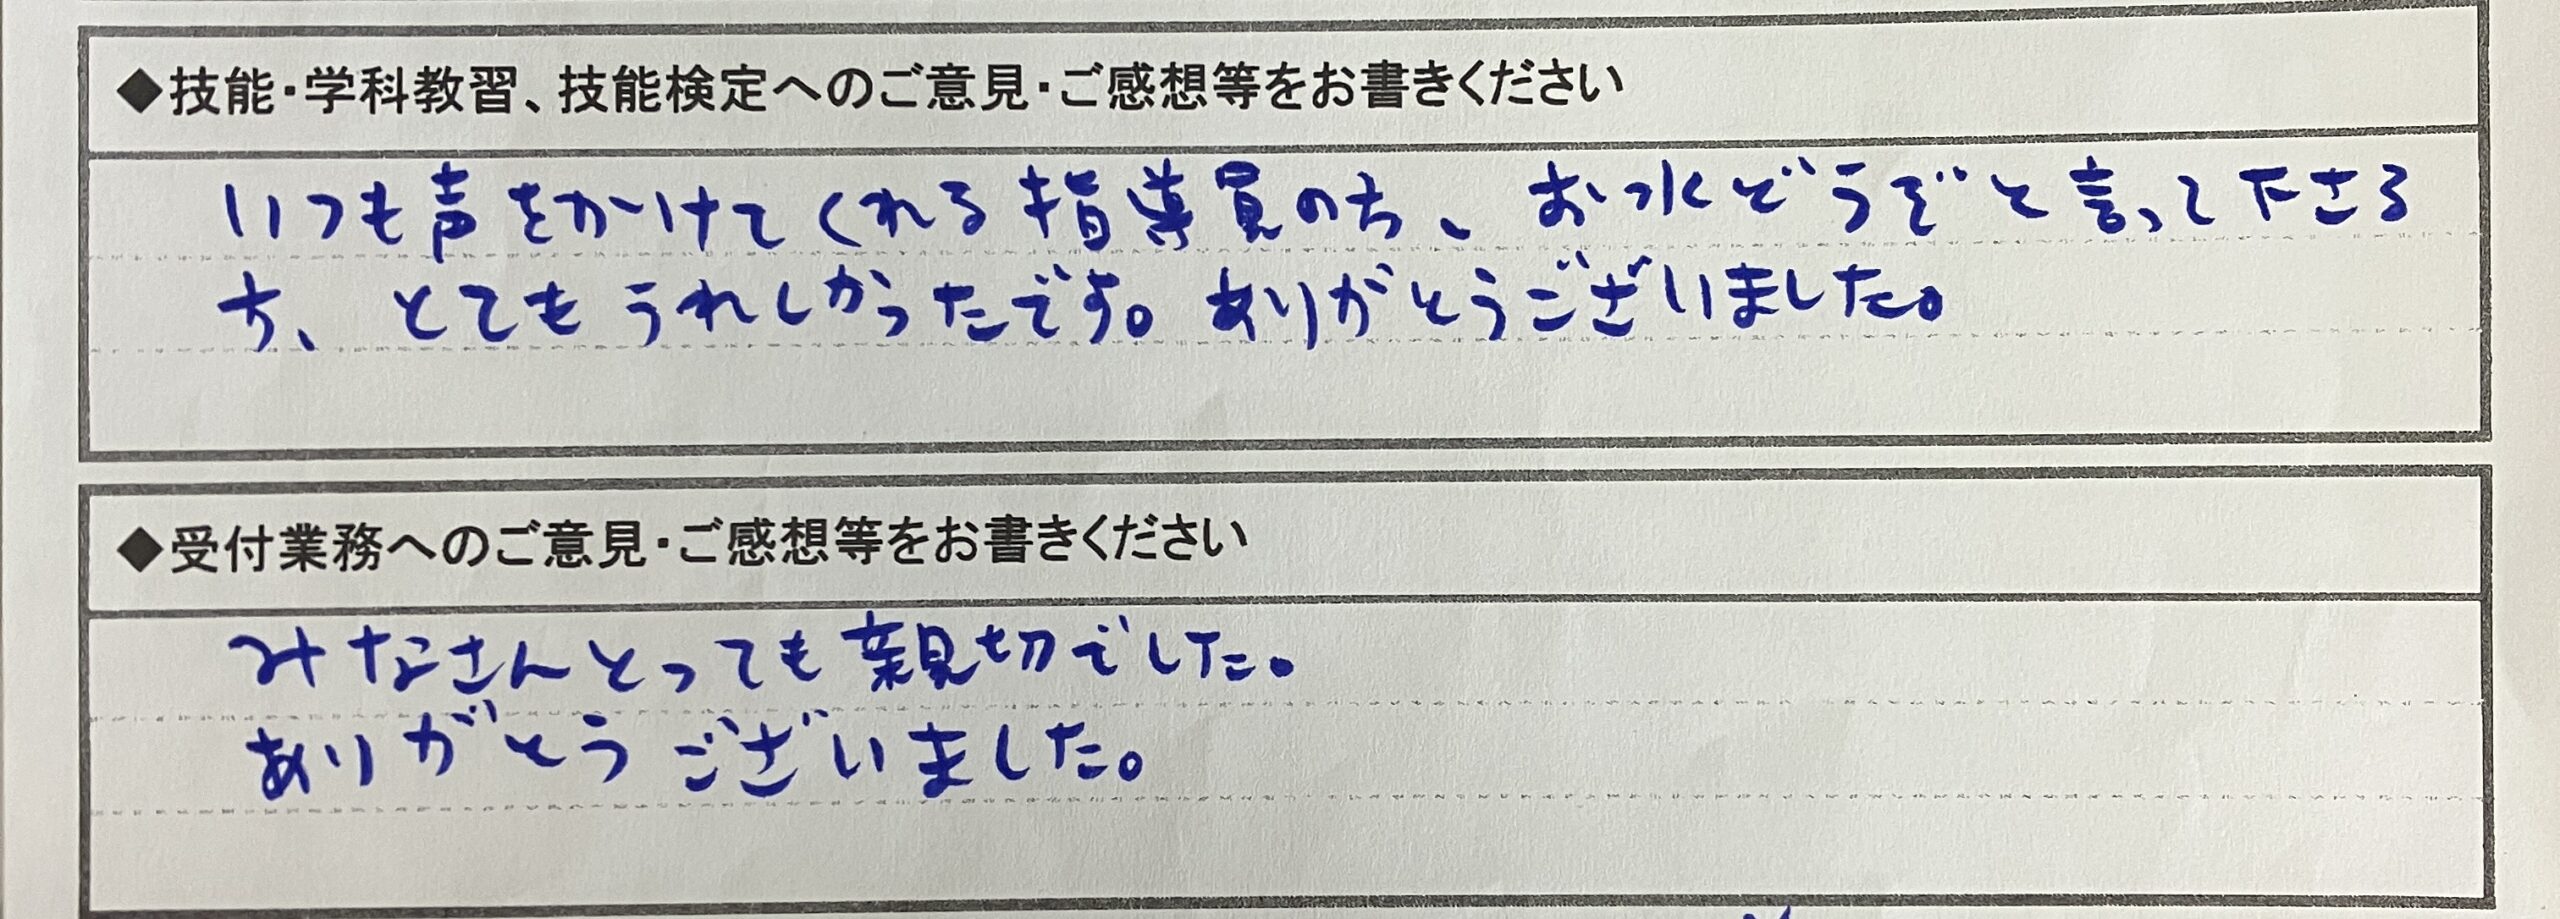 ◆技能・学科教習、技能検定へのご意見・ご感想等をお書きください
いつも声をかけてくれる指導員の方、お水どうぞと言って下さる
方、とてもうれしかったです。ありがとうございました。
◆受付業務へのご意見・ご感想等をお書きください
みなさんとっても親切でした。
ありがとうございました。